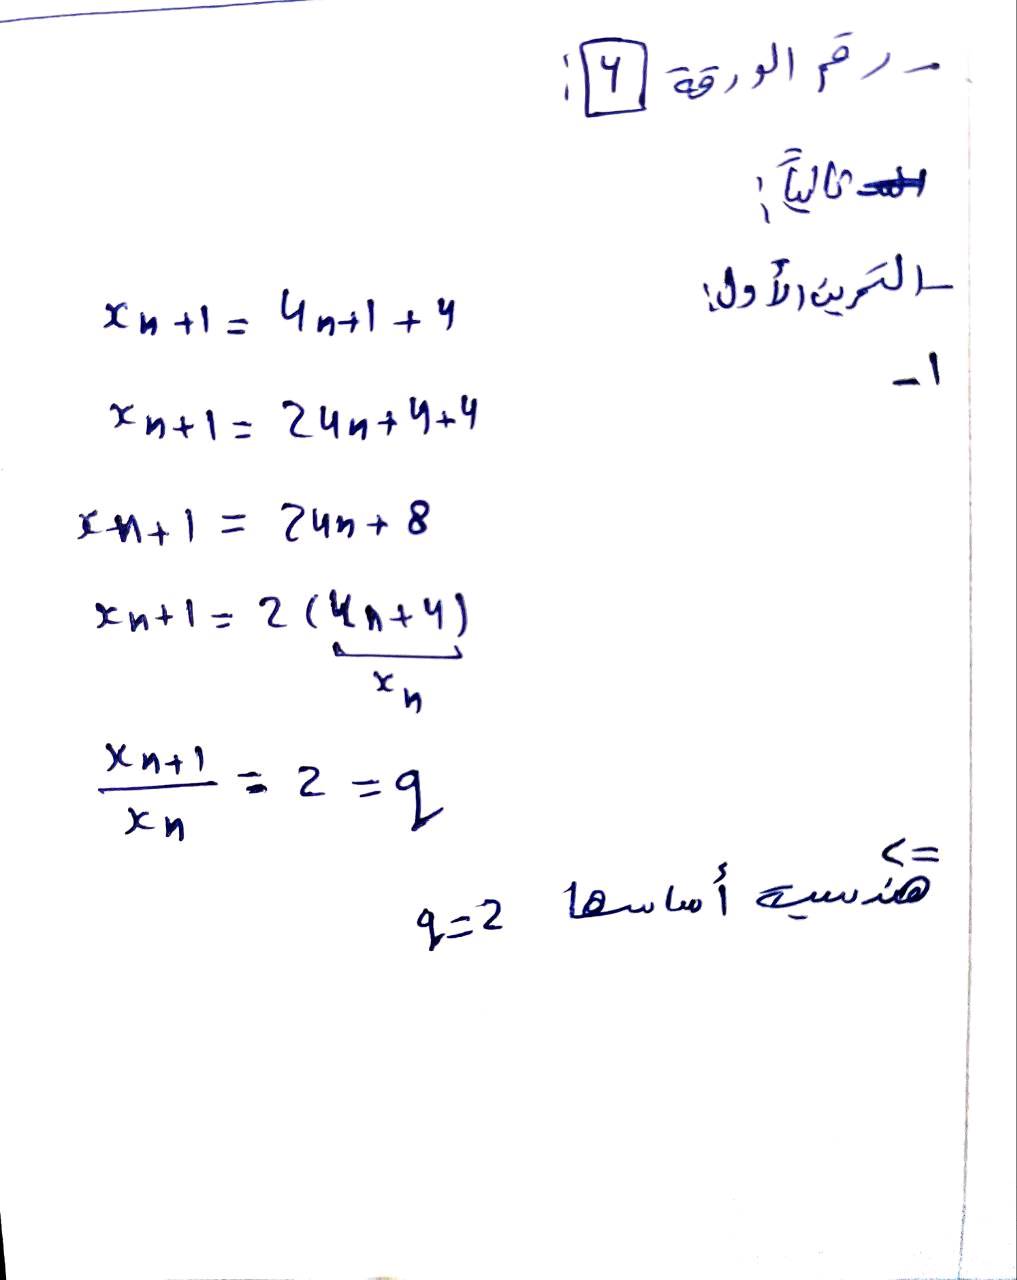 - رقم الورقة 4 :
ثالثاً :
- التمرين الأول :
1 -
x n+1 = 4 n+1 + 4
x n+1 = 2 4n + 4 + 4
x n+1 = 2 4n + 8
x n+1 = 2 (4n + 4)
x n
x n+1 / x n = 2 = q
<=
هندسية أساسها q = 2